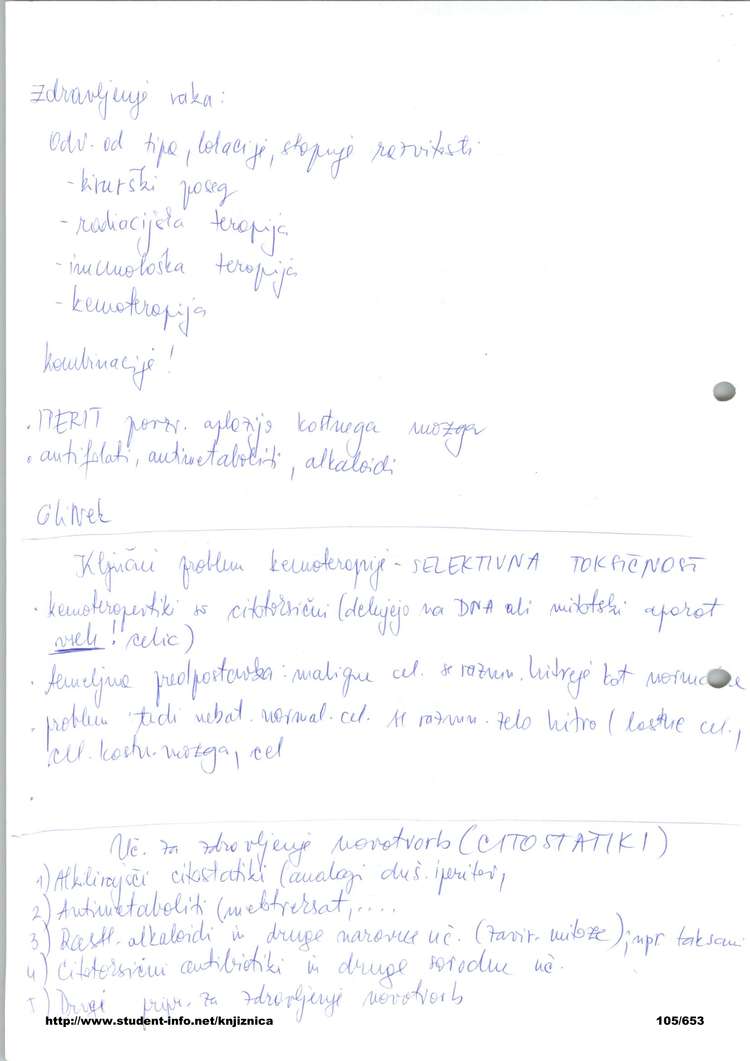 Zdravljenje raka:
Odv. od tipa, lokacije, stopnje razvitosti
- kirurški poseg
- radiacijska terapija
- imunološka terapija
- kemoterapija
kombinacije!
. IPERIT povzr. aplazijo kostnega mozga
. antifolati, antimetaboliti, alkaloidi
Glivek
Ključni problem kemoterapije - SELEKTIVNA TOKSIČNOST
. kemoterapevtiki so citotoksični (delujejo na DNA ali mitotski aparat
vseh! celic)
. temeljna predpostavka: maligne cel. se razmn. hitreje kot
. problem tudi nekat. normal. cel. se razmn. zelo hitro (lastne cel.,
cel. kostn. mozga, cel
.
Uč. za zdravljenje novotvorb (CITOSTATIKI)
1) Alkilirajoči citostatiki (analogi duš. iperitov,
2) Antimetaboliti (metotreksat, ....
3) Rastl. alkaloidi in druge naravne uč. (zavir. mitoze); npr taksani
4) Citotoksični antibiotiki in druge sorodne uč.
5) Drugi pripr. za zdravljenje novotvorb
http://www.student-info.net/knjiznica
105/653